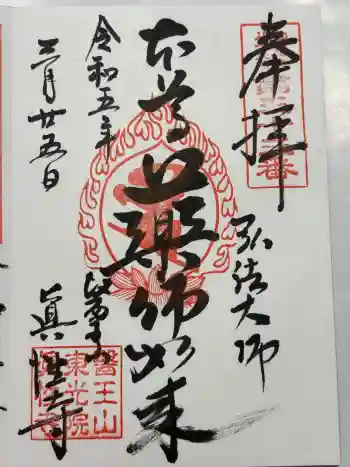 奉拝
弘法大師
本尊
薬師如来
令和五年
二月廿五日
眞性寺
醫王山
東光院
眞性寺